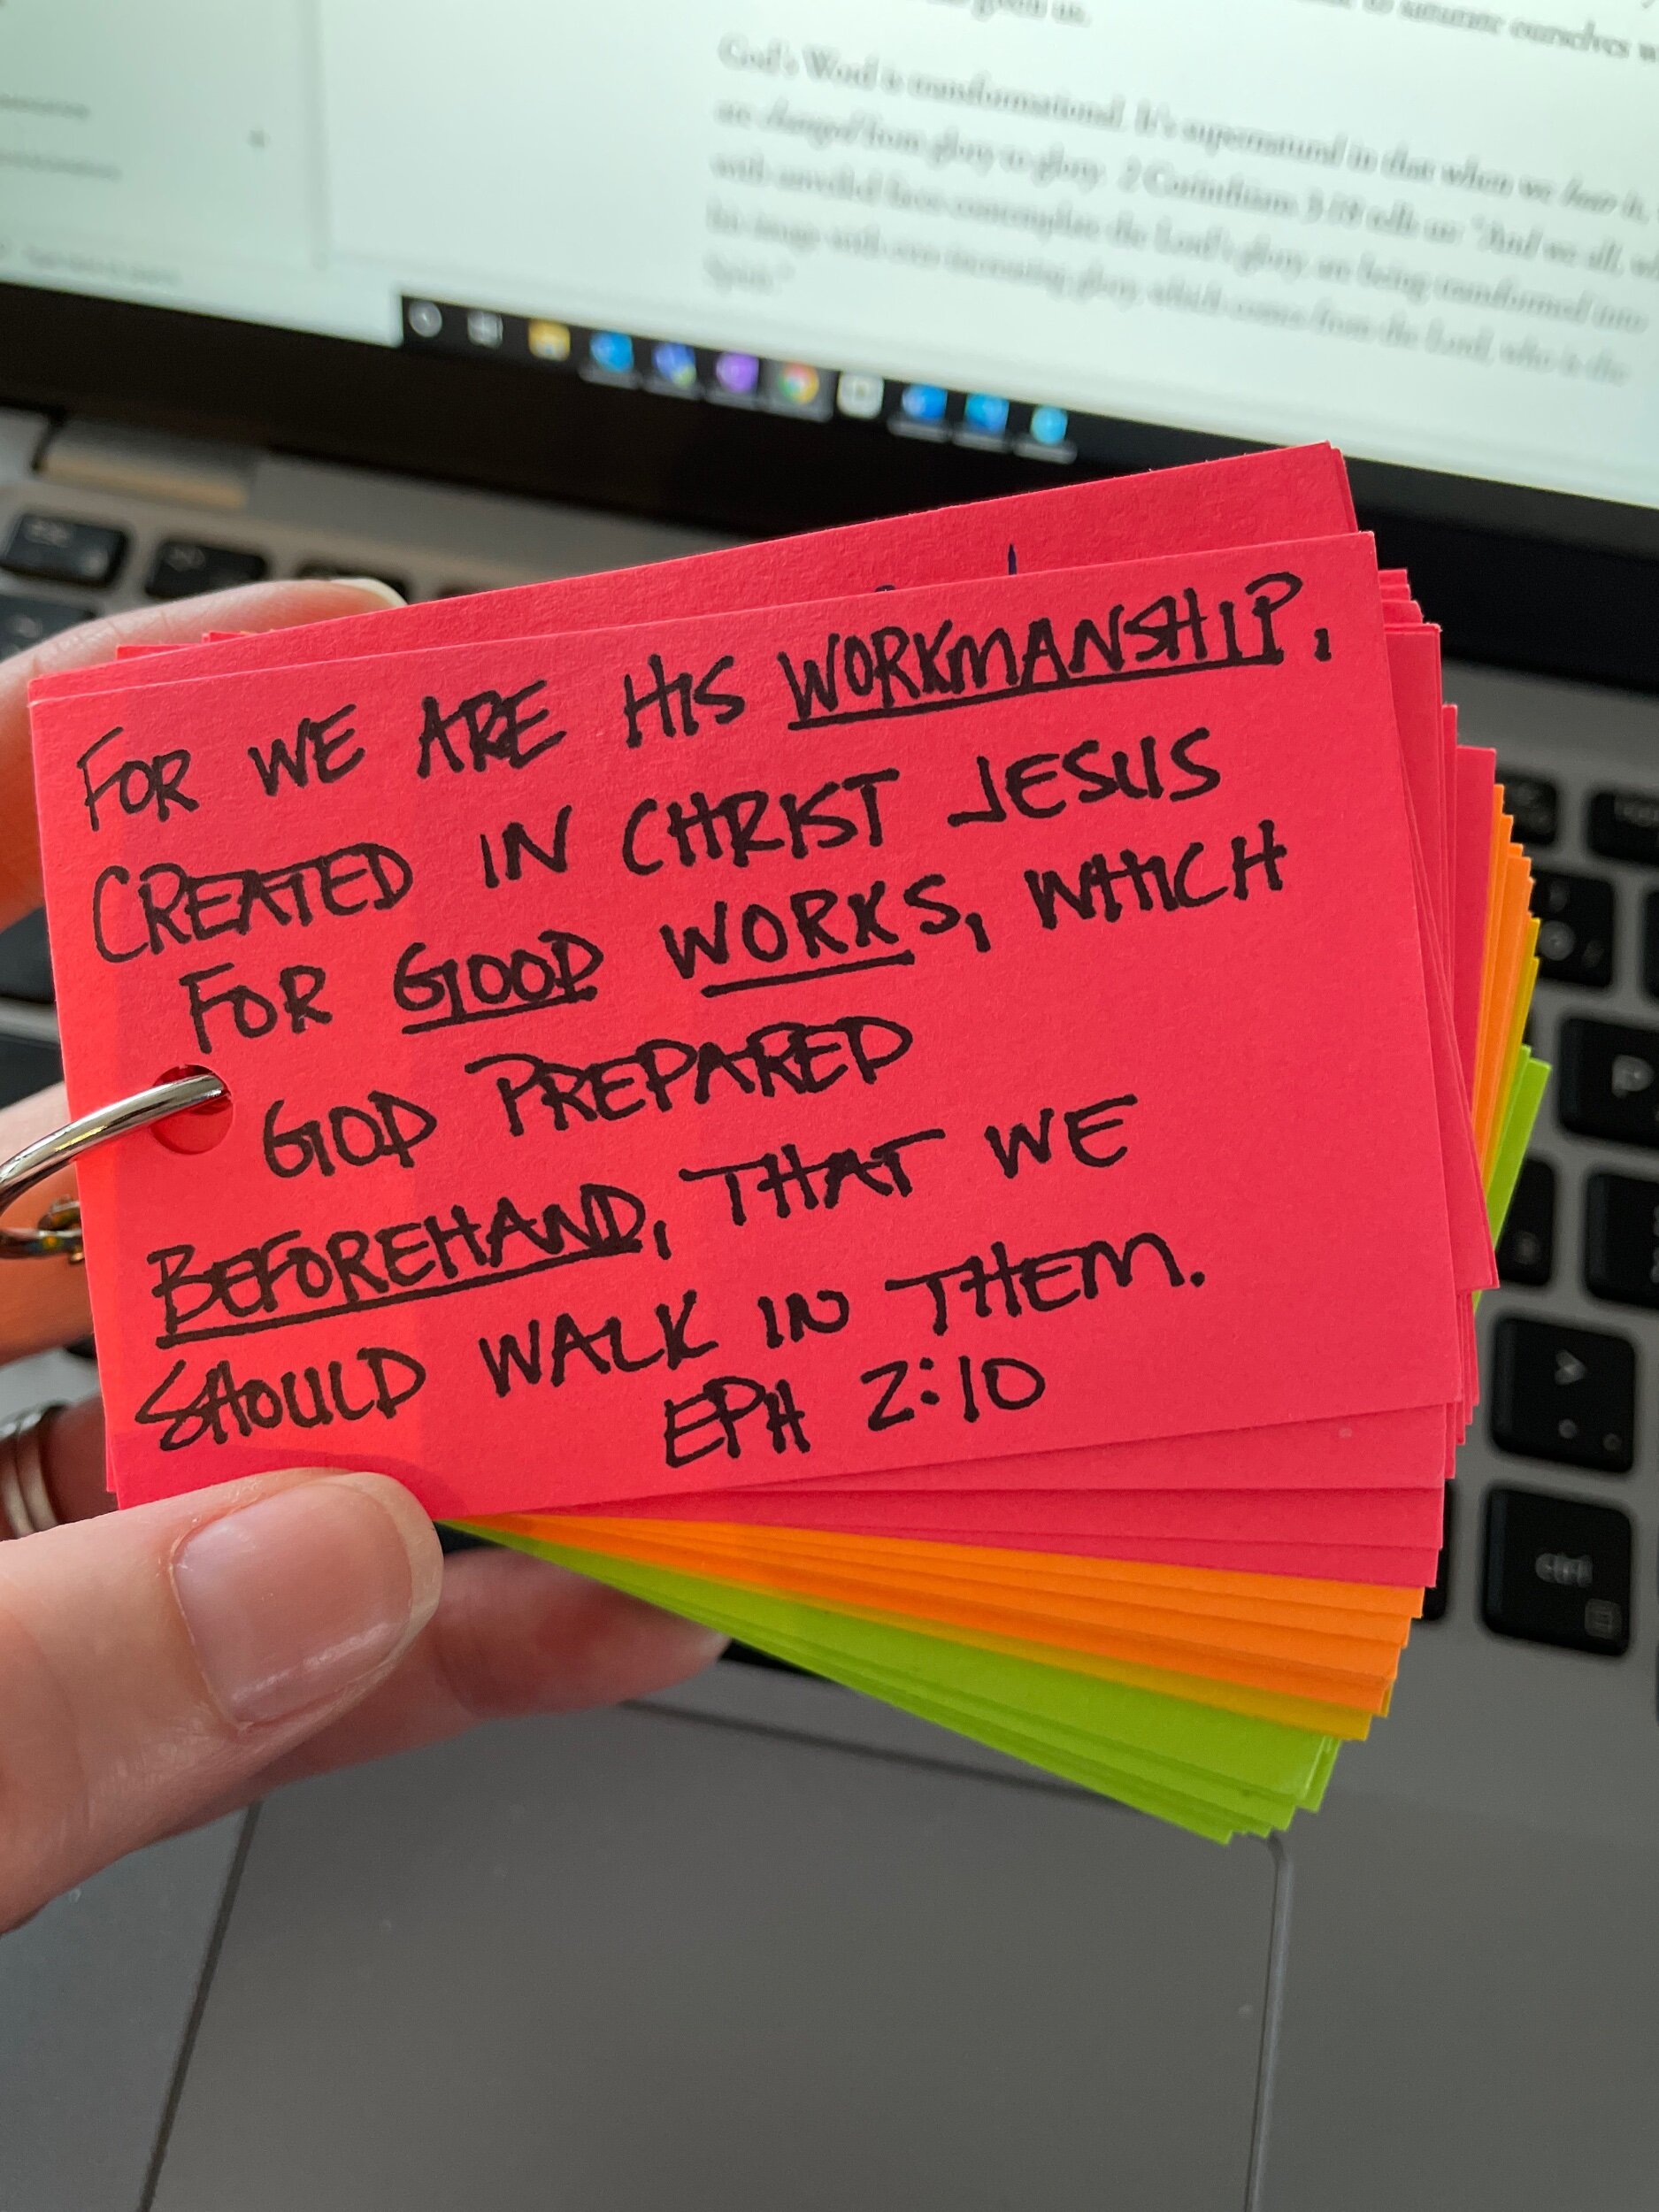 God's Word is transformational. It's supernatural in that when we hear it,
are changed from glory to glory. 2 Corinthians 3:18 tells us: "And we all,
with unveiled faces contemplate the Lord's glory, are being transformed into
his image with ever-increasing glory, which comes from the Lord, who is the
Spirit."
FOR WE ARE HIS WORKMANSHIP,
CREATED IN CHRIST JESUS
FOR GOOD WORKS, WHICH
GOD PREPARED
BEFOREHAND, THAT WE
SHOULD WALK IN THEM.
EPH 2:10
P
>
ctrl